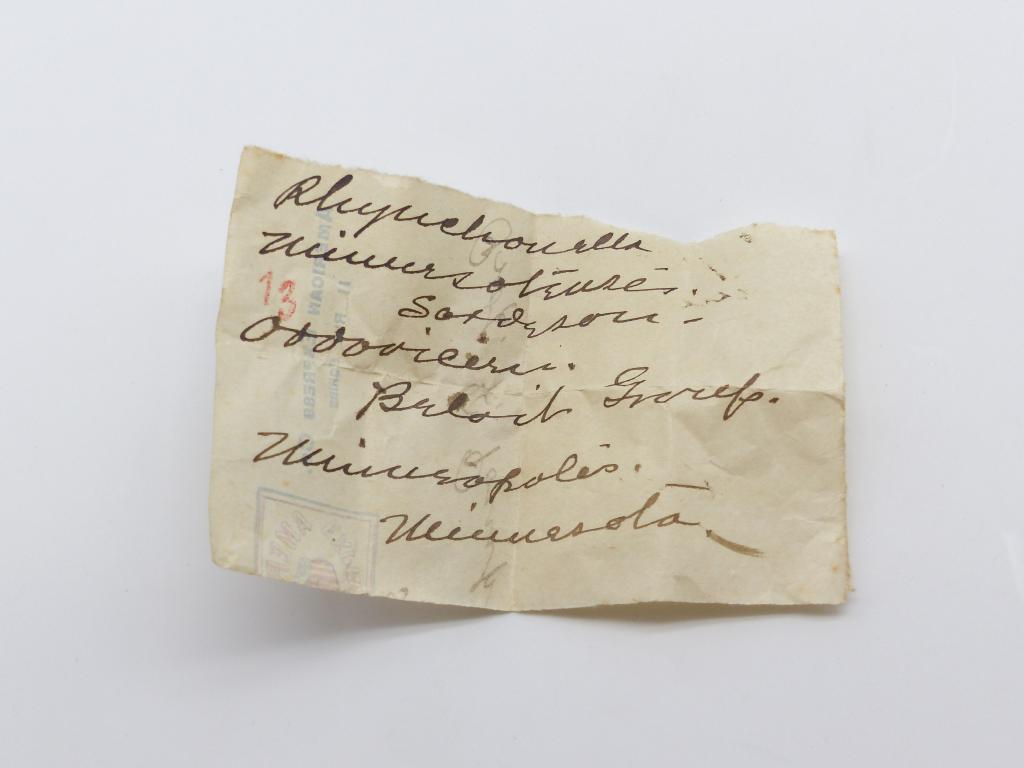 Rhynchonella
Minnesotensis.
Sardeson -
Ordovician.
Beloit Group.
Minneapolis.
Minnesota.
13
AMERICAN EXPRESS